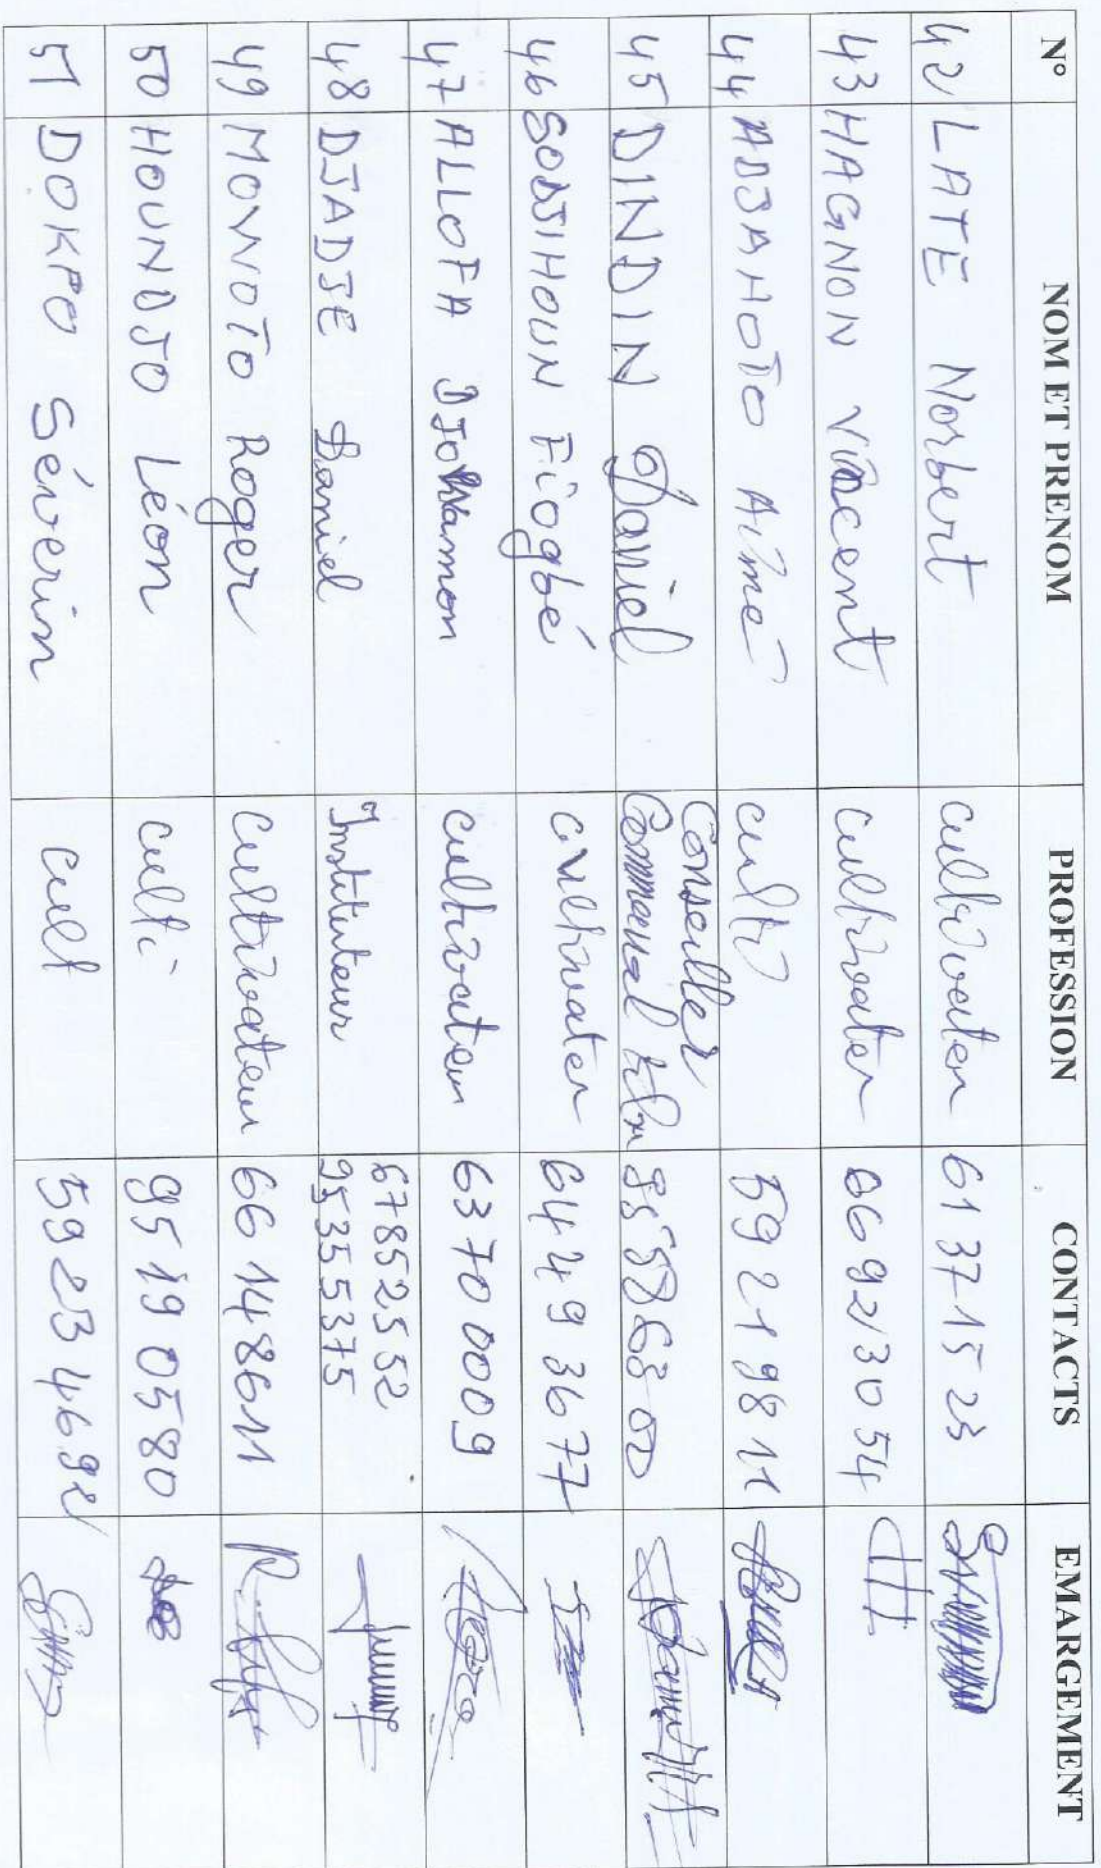 N° NOM ET PRENOM PROFESSION CONTACTS EMARGEMENT
42 LATE Norbert cultivateur 61 37 15 23
43 HAGNON Vincent cultivater 66 92 30 54
44 ADJAHOTO Aimé culti 59 21 98 11
45 DINDIN Daniel Conseiller
Communal 95 58 68 00
46 SODJIHOUN Fiogbé cultivater 64 49 36 77
47 ALLOFA cultivateur 63 70 00 09
48 DJADJE Daniel Instituteur 67852552
95355375
49 MONNOTO Roger Cultivateur 66 14 86 11
50 HOUNDJO Léon culti 95 19 05 80
51 DOKPO Séverin cult 59 23 46 92